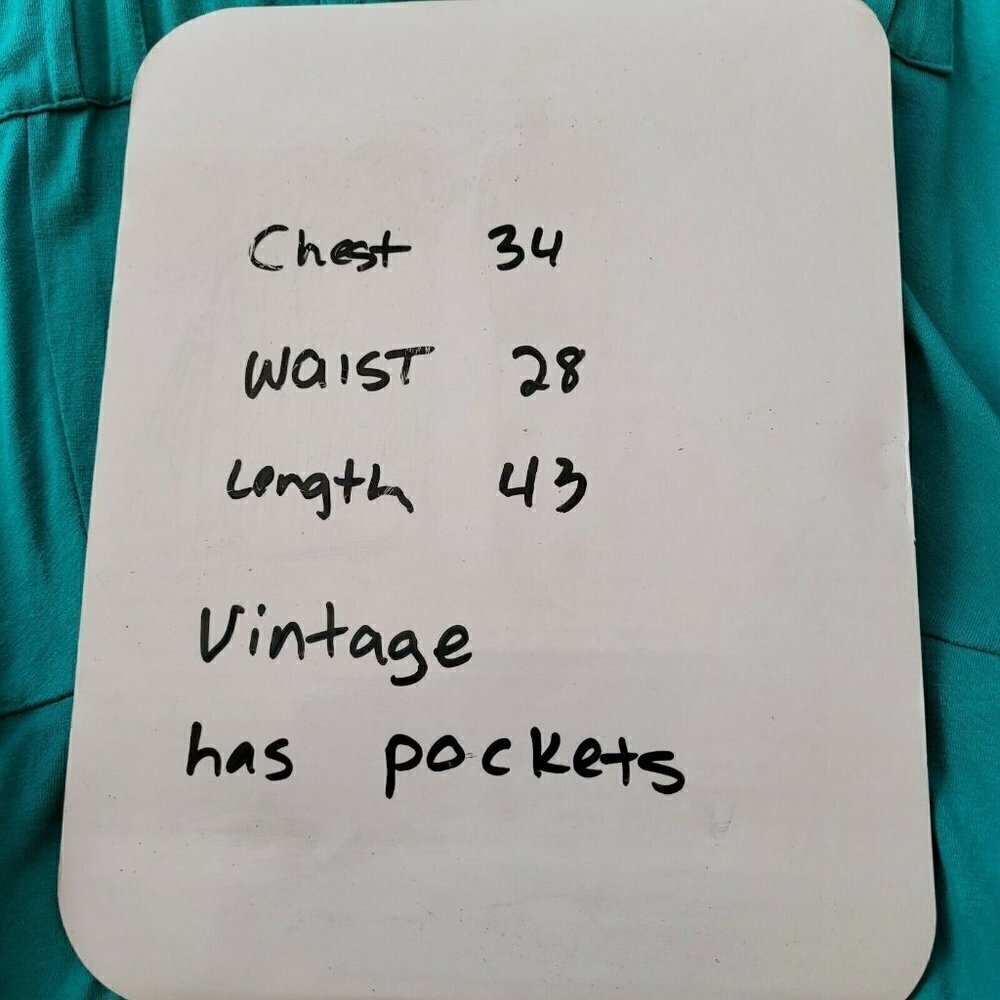 Chest 34
WAIST 28
Length 43
Vintage
has pockets